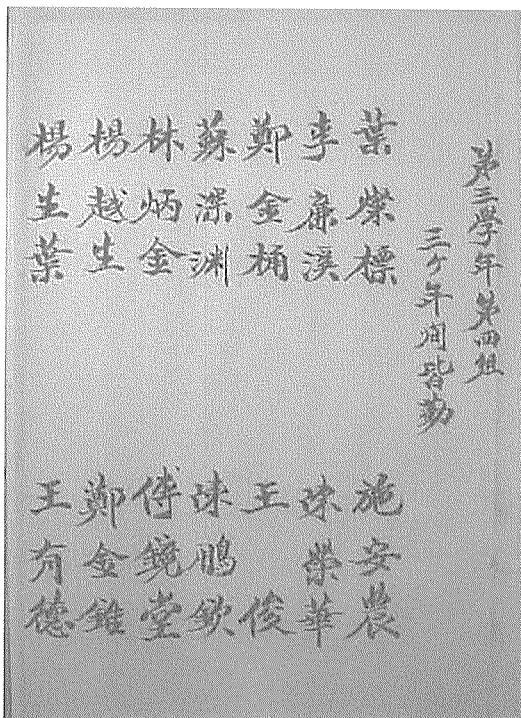 第三學年第四組
三ヶ年間皆勤
葉燦標
李廉溪
鄭金桶
蘇深渊
林炳金
楊越生
楊生葉
施安農
陳榮華
王俊
陳鵬欽
傅鏡堂
鄭金錐
王有德